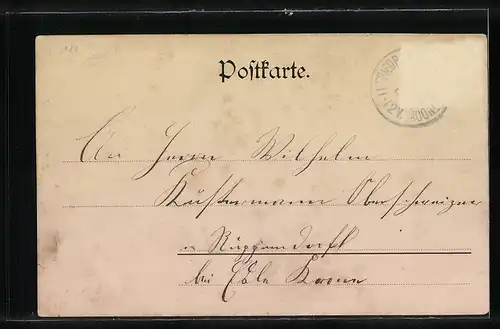 Postkarte.
An Herrn Wilhelm
Kustermann Oberschweizer
in Ruppendorf
bei Edle Krone